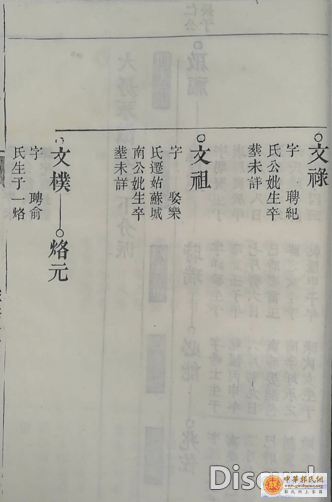 文祿
字　聘紀
氏公妣生卒
塟未詳
文祖
字　娶樂
氏遷姑蘇城
南公妣生卒
塟未詳
文樸
烙元
字　聘俞
氏生子一烙
中華郭氏網